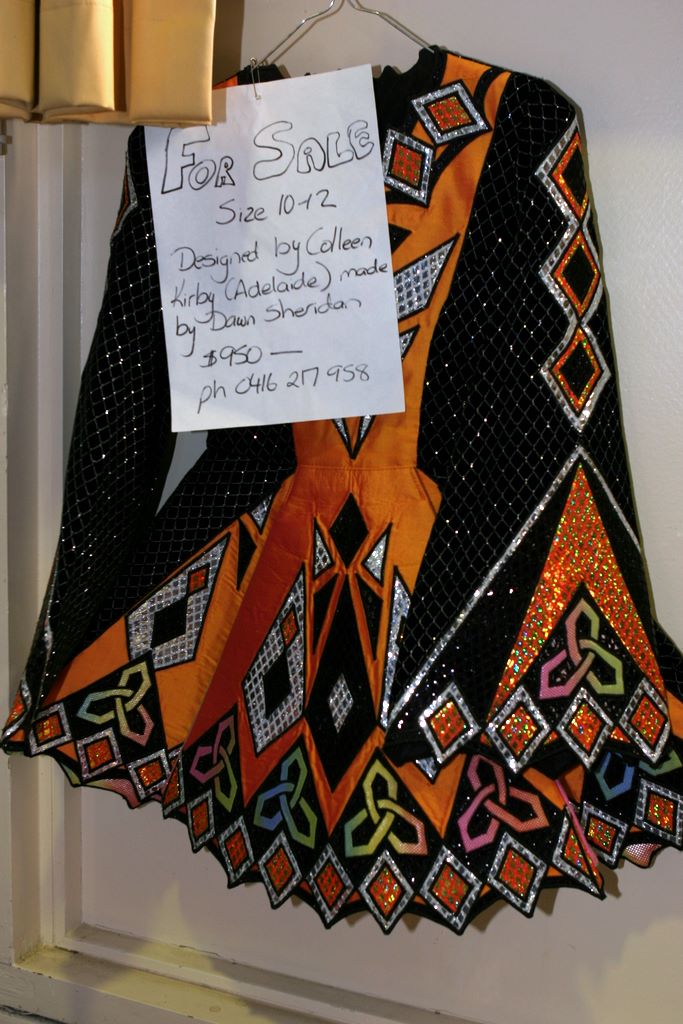 FOR SALE
Size 10-12
Designed by Colleen
Kirby (Adelaide) made
by Dawn Sheridan
$950 —
ph 0416 217 958